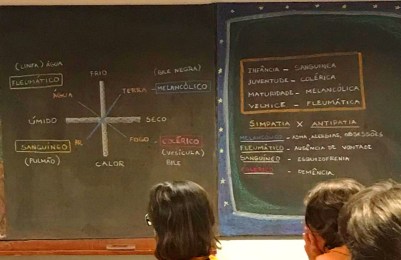 (LINFA) ÁGUA
FLEUMÁTICO
FRIO
(BILE NEGRA)
ÁGUA
TERRA - MELANCÓLICO
ÚMIDO
SECO
SANGUÍNEO
AR
FOGO - COLÉRICO
(PULMÃO)
(VESÍCULA)
BILE
CALOR
INFÂNCIA - SANGUÍNICA
JUVENTUDE - COLÉRICA
MATURIDADE - MELANCÓLICA
VELHICE - FLEUMÁTICA
SIMPATIA X ANTIPATIA
MELANCÓLICO - ASMA, ALERGIAS, OBSESSÕES
FLEUMÁTICO - AUSÊNCIA DE VONTADE
SANGUÍNEO - ESQUIZOFRENIA
- DEMÊNCIA